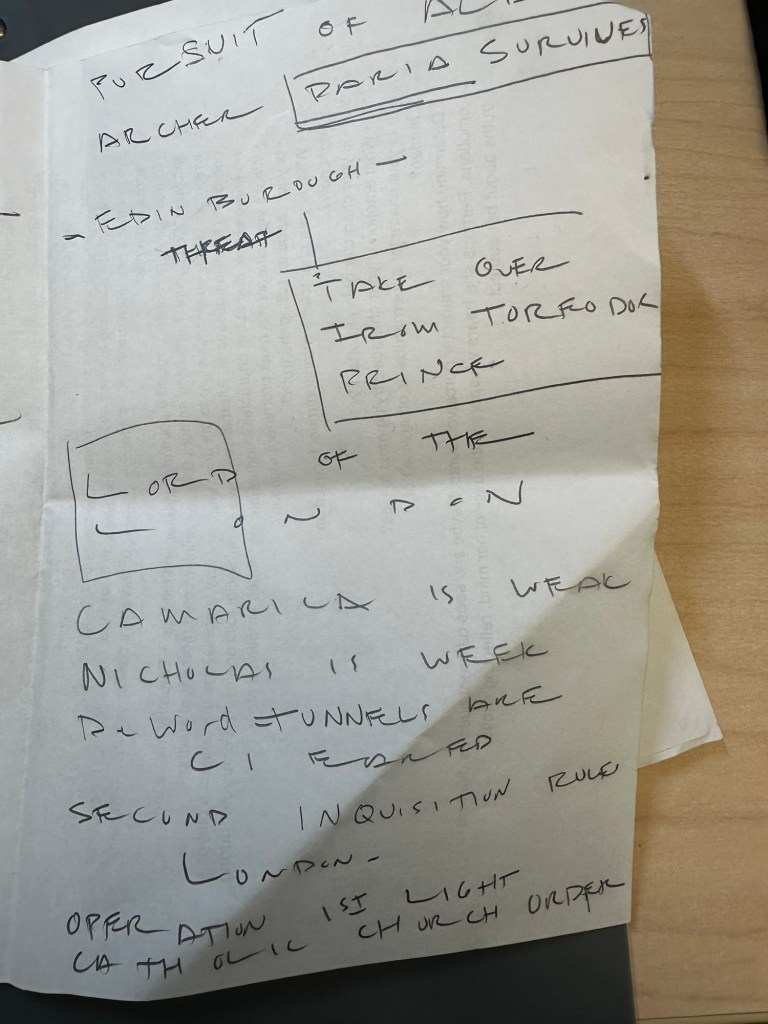 PURSUIT OF
ARCHER DARIA SURVIVES
- EDIN BUROUGH -
THREAT
TAKE OVER
FROM TOREODOR
PRINCE
LORD OF THE
LONDON
CAMARILA IS WEAK
NICHOLAS IS WEEK
TUNNELS ARE
CLEARED
SECOND INQUISITION RULE
LONDON -
OPERATION 1ST LIGHT
CATHOLIC CHURCH ORDER